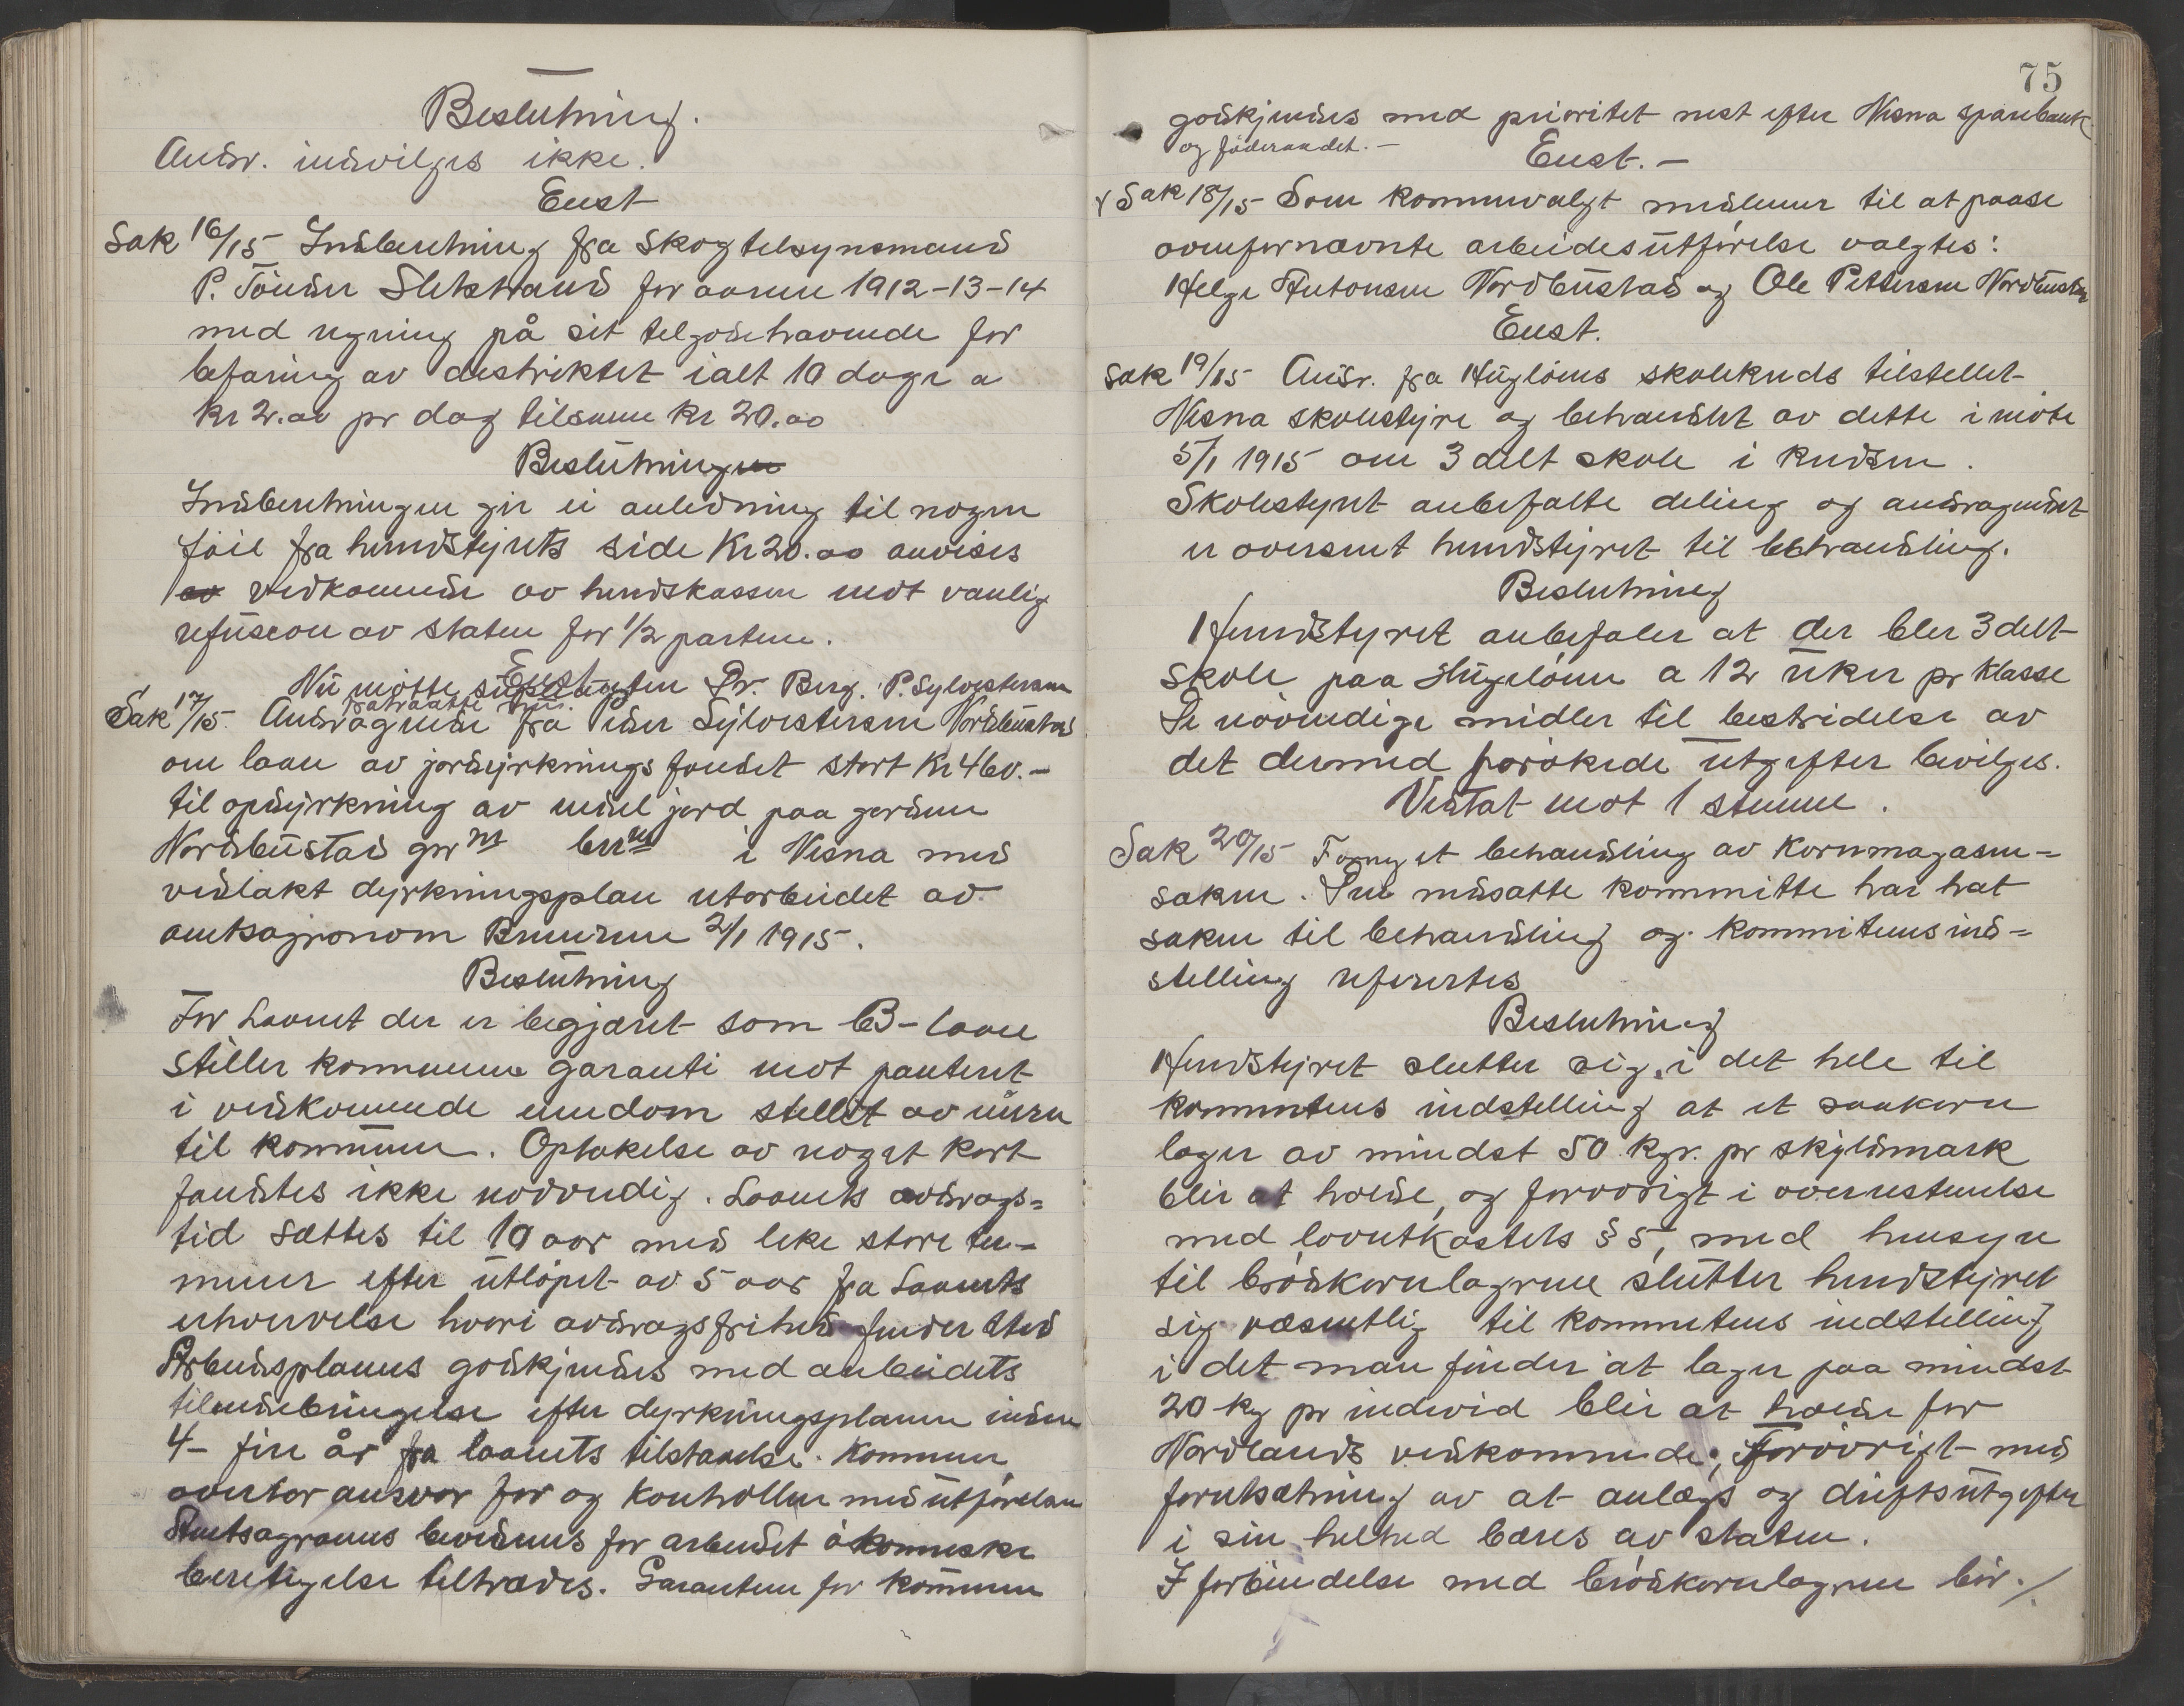 Beslutning.
Andr. indvilges ikke.
Enst
Sak 16/15 Indberetning fra skogtilsynsmand
P. Tönder Sletstrand for aarene 1912-13-14
med regning på sit tilgodehavende for
befaring av distriktet ialt 10 dage a
kr 2.00 pr dag tilsamen kr 20.00
Beslutning
Indberetningen gir ei anledning til nogen
föie fra herredstyrets side Kr 20.00 anvises
vedkommende av herredskassen mot vanlig
refusion av staten for 1/2 parten.
Enst
Nu mötte Dr. Berg. P. Sylvestersen
fratraatte
Sak 17/15. Andragende fra Peder Sylvestersen Nordbustad
om laan av jorddyrkningsfondet stort Kr 460.-
til opdyrkning av udlet jord paa gaarden
Nordbustad gr nr br nr i Nesna med
vedlakt dyrkningsplan utarbeidet av
amtsagronom 2/1 1915.
Beslutning
For Laanet der er begjæret som B-laan
stiller kommunen garanti mot panteret
i vedkommende eiendom stellet av eieren
til kommunen. Optakelse av noget kart
fandtes ikke nödvendig. Laanets avdrags=
tid sættes til 10 aar med like store ter=
miner efter utlöpet av 5 aar fra Laanets
erhvervelse hvori avdragsfrihed finder sted
Arbeidsplanens godkjendes med arbeidets
tilendebringelse efter dyrkningsplanen inden
4- fire år fra laanets tilstaaelse. Kommunen
overtar ansvar for og kontrollen med utförelsen
Amtsagronens bevidnes for arbeidet ökonomiske
berettigelse tiltrædes. Garantien for kommunen
75
godkjendes med prioritet nest efter Nesna sparebank
og föderaadet.-
Enst.-
Sak 18/15 Som kommunevalgt medlemer til at paase
ovenfornævnte arbeidesutförelse valgtes:
Helge Antonsen Nordbustad og Ole Pettersen Nordbustad
Enst.
Sak 19/15 Andr. fra Huglöens skolekreds tilstellet
Nesna skolestyre og behandlet av dette i möte
5/1 1915 om 3 delt skole i kredsen.
Skolestyret anbefalte deling og andragendet
er oversent herredstyret til behandling.
Beslutning
Herredstyret anbefaler at der bler 3 delt
skole paa Hugelöen a 12 uker pr klasse
De nödvendige midler til bestridelse av
det dermed forökede utgifter bevilges.
Vedtat mot 1 stemme.
Sak 20/15 Fornyet behandling av Kornmagasin=
saken. Den nedsatte kommitte har hat
saken til behandling og kommiteens ind=
stelling refertes
Beslutning
Herredstyret slutter sig i det hele til
kommiteens indstelling at et saakorn
lager av mindst 50 kgr. pr skyldmark
blir at holde, og forövrigt i overenstemelse
med lovutkastets § 5, med hensyn
til brödkornlagrene slutter herredstyret
sig væsentlig til kommiteens indstelling
i det man finder at lager paa mindst
20 kg pr individ blir at holde for
Nordlands vedkommende, Forövrigt med
forutsætning av at anlægs og driftsutgifter
i sin helhed bæres av staten.
I forbindelse med brödkornlagrene bör ./